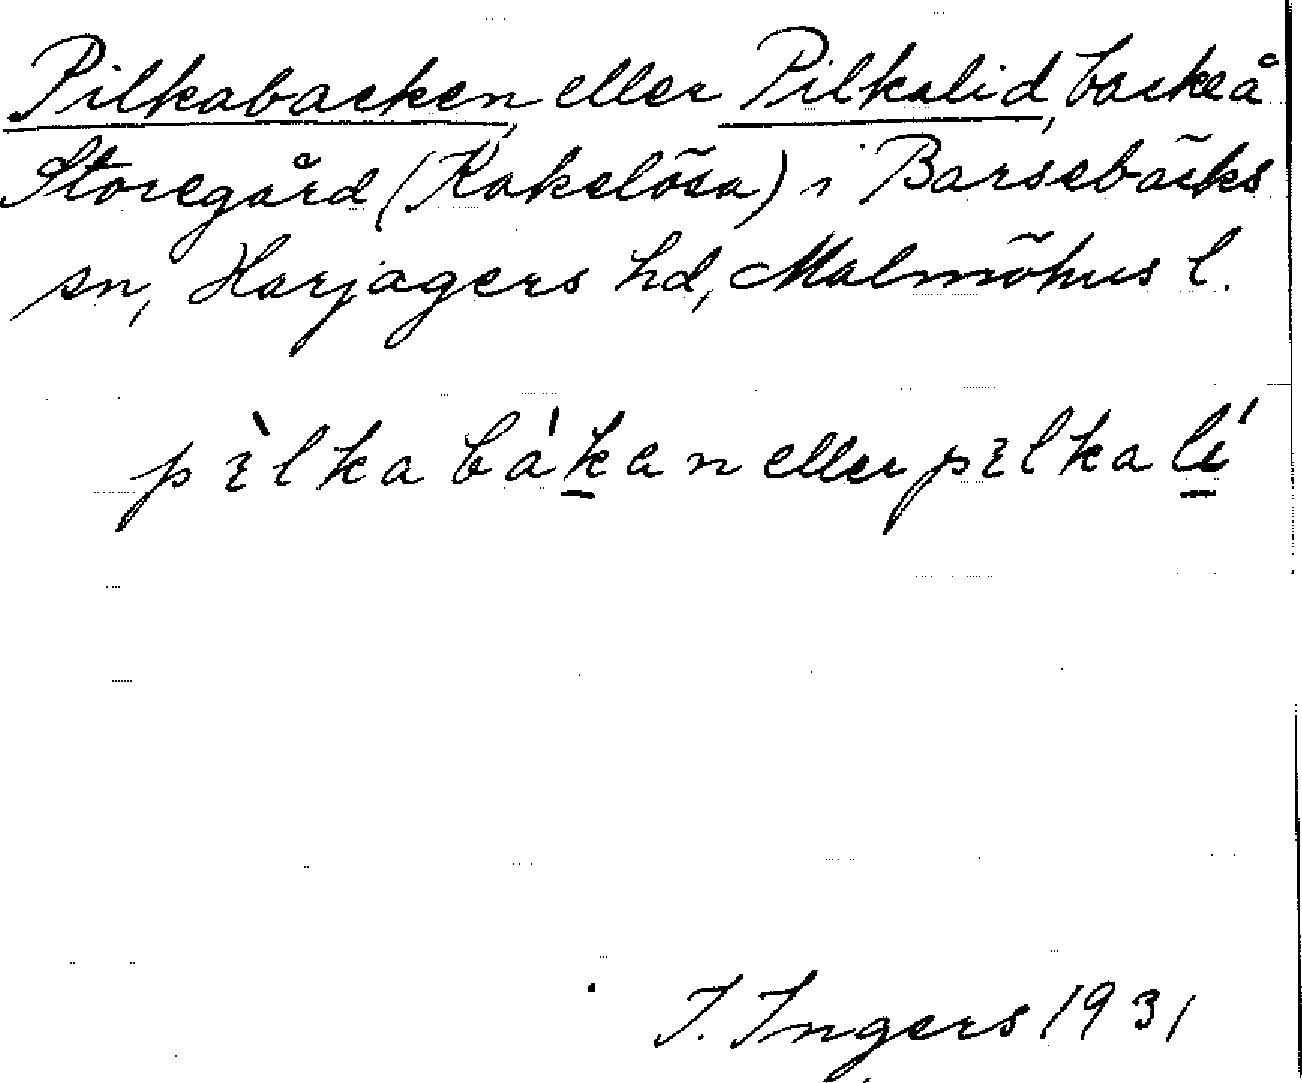 Pilkabacken, eller Pilkalid, backe å
Storegård (Kakelösa) i Barsebäcks
sn, Harjagers hd, Malmöhus l.
pìlkabákan eller pìlkalí
I. Ingers 1931